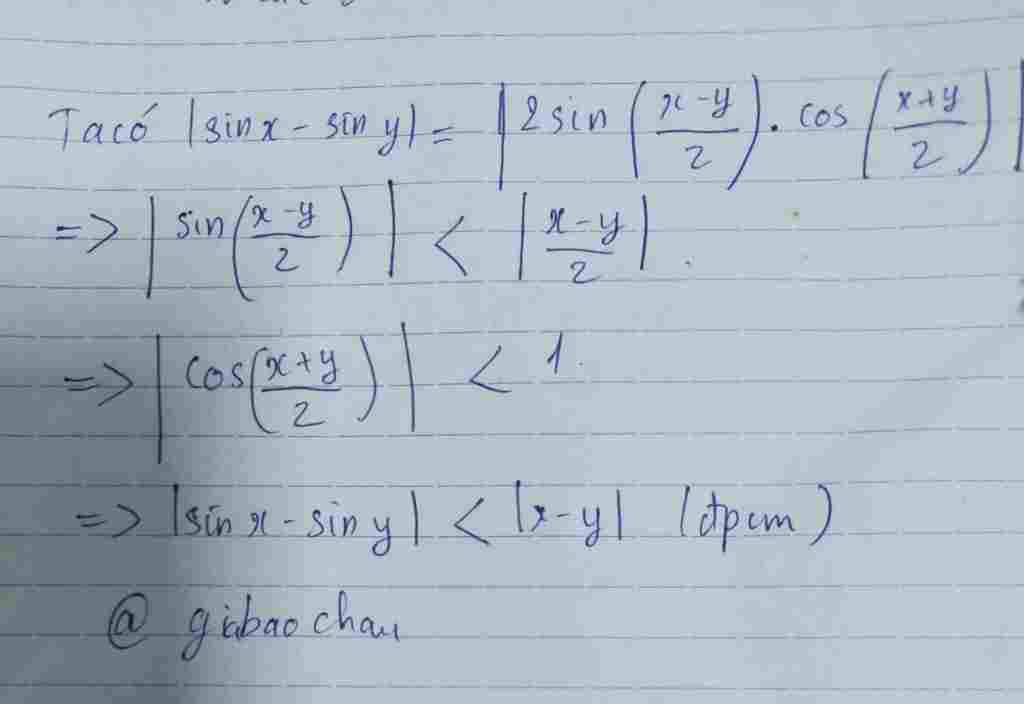 Ta có |sin x - sin y| = |2 sin((x-y)/2) . cos((x+y)/2)|
=> |sin((x-y)/2)| < |(x-y)/2|.
=> |cos((x+y)/2)| < 1.
=> |sin x - sin y| < |x-y| (đpcm)
@ giabaochau